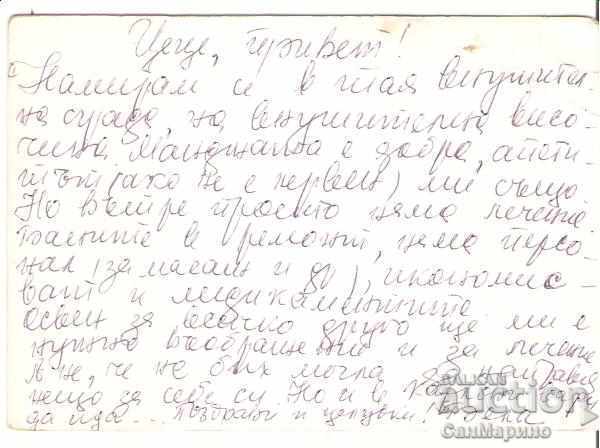 Цеце, привет!
Намирам се в тая внушител-
на сграда, на внушителна висо-
чина. Манджата е добра, апети-
тът (ако не е нервен) ми също
Но вътре просто няма лечение
Баните в ремонт, няма персо-
нал (за масаж и др), икономис-
ват и медикаментите
освен за всичко друго ще ми е
нужно въображение и за лечение
А не, че не бих могла да направя
нещо за себе си. Но и в
да ида... Поздрави и целувки!
BALKAN
auction
СанМарино